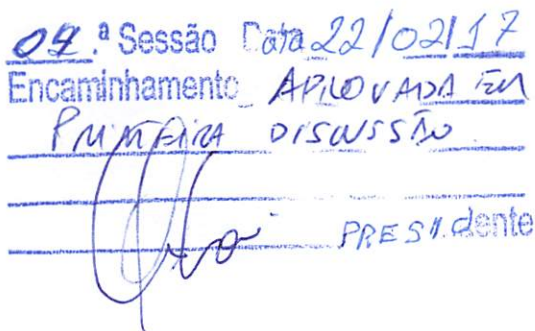 04.ª Sessão Data 22/02/17
Encaminhamento APROVADA EM
PRIMEIRA DISCUSSÃO
PRESIdente